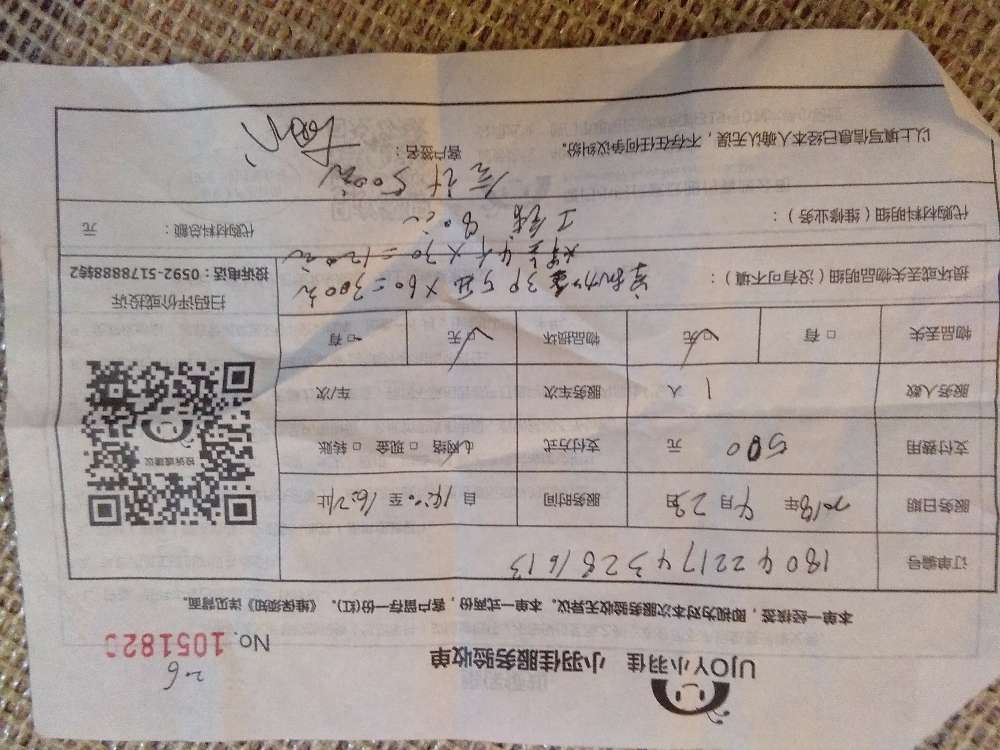 UJOY小羽佳 小羽佳服务验收单
26
No. 1051820
本单一经核签，即视为对本次服务验收无异议。本单一式两份，客户留存一份(红)。《维保须知》详见背面。
订单编号 1804221743281613
服务日期 2018年 4月 23日 服务时间 自 14:20 至 16:27 止
支付费用 500 元 支付方式 ☑网络 □现金 □转账
服务人数 1 人 服务车次 车/次
物品丢失 □有 ☑无 物品损坏 ☑无 □有
投诉或建议
扫码评价或投诉
投诉电话：0592-5178888转2
损坏或丢失物品明细（没有可不填）：
3P 5组 ×60=300元
4个×30=120元
代购材料明细（维修业务）： 代购材料总额： 元
工钱 80元
合计 500元
以上填写信息已经本人确认无误，不存在任何争议纠纷。 客户签名：